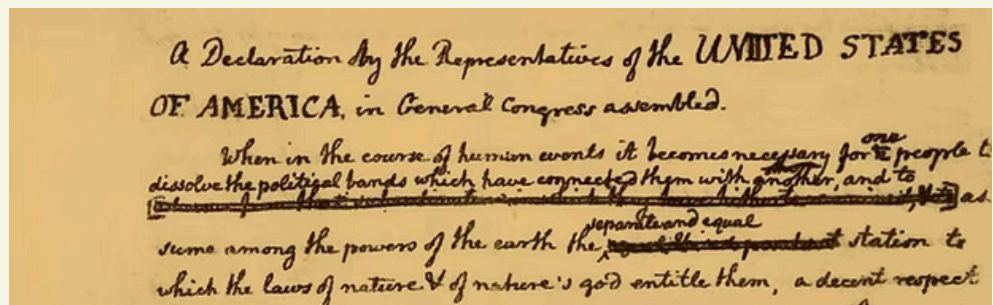 A Declaration by the Representatives of the UNITED STATES
OF AMERICA, in General Congress assembled.
When in the course of human events it becomes necessary for one people t
dissolve the political bands which have connected them with another, and to
as
sume among the powers of the earth the separate and equal station to
which the laws of nature & of nature's god entitle them, a decent respect